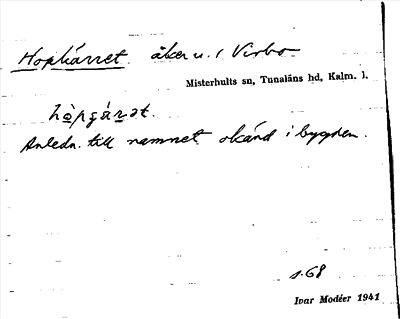 Hopkärret. åker u. / Virbo
Misterhults sn, Tunaläns hd, Kalm. l.
hòpçárət.
Anledn. till namnet okänd i bygden.
s. 68
Ivar Modéer 1941